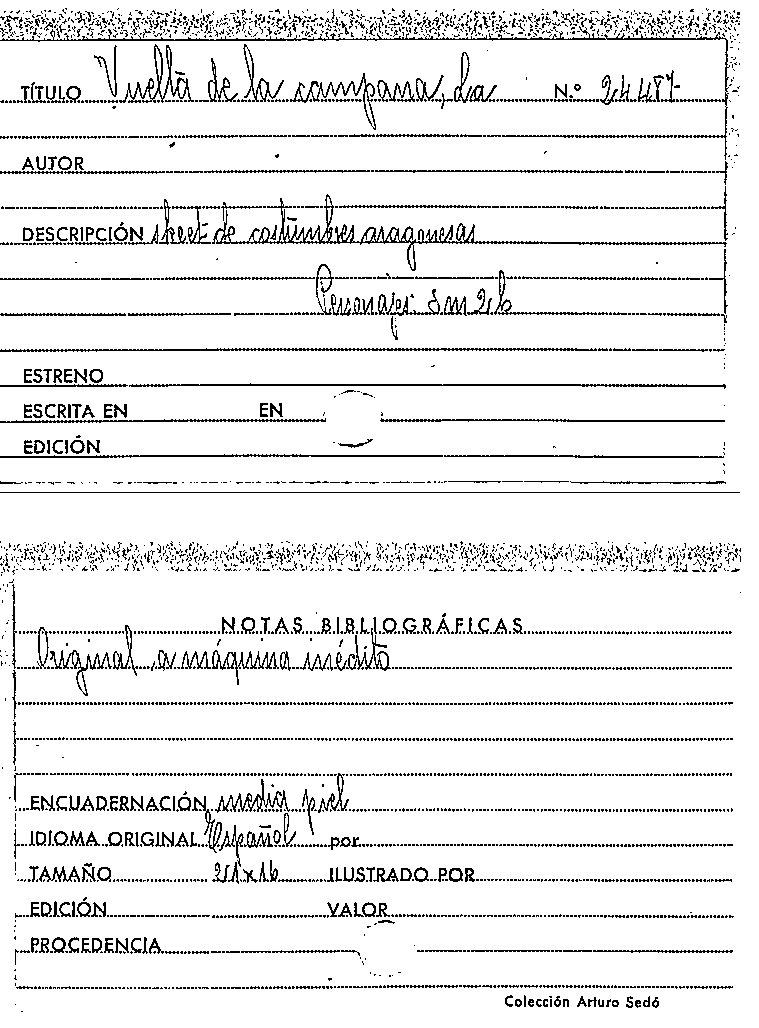 TÍTULO Vuelta de la campana, La N.º 24487
AUTOR
DESCRIPCIÓN skeet de costumbres aragonesas
Personajes: 3m 2h
ESTRENO
ESCRITA EN EN
EDICIÓN
NOTAS BIBLIOGRÁFICAS
Original a máquina inédito
ENCUADERNACIÓN media piel
IDIOMA ORIGINAL Español por
TAMAÑO 21x16 ILUSTRADO POR
EDICIÓN VALOR
PROCEDENCIA
Colección Arturo Sedó